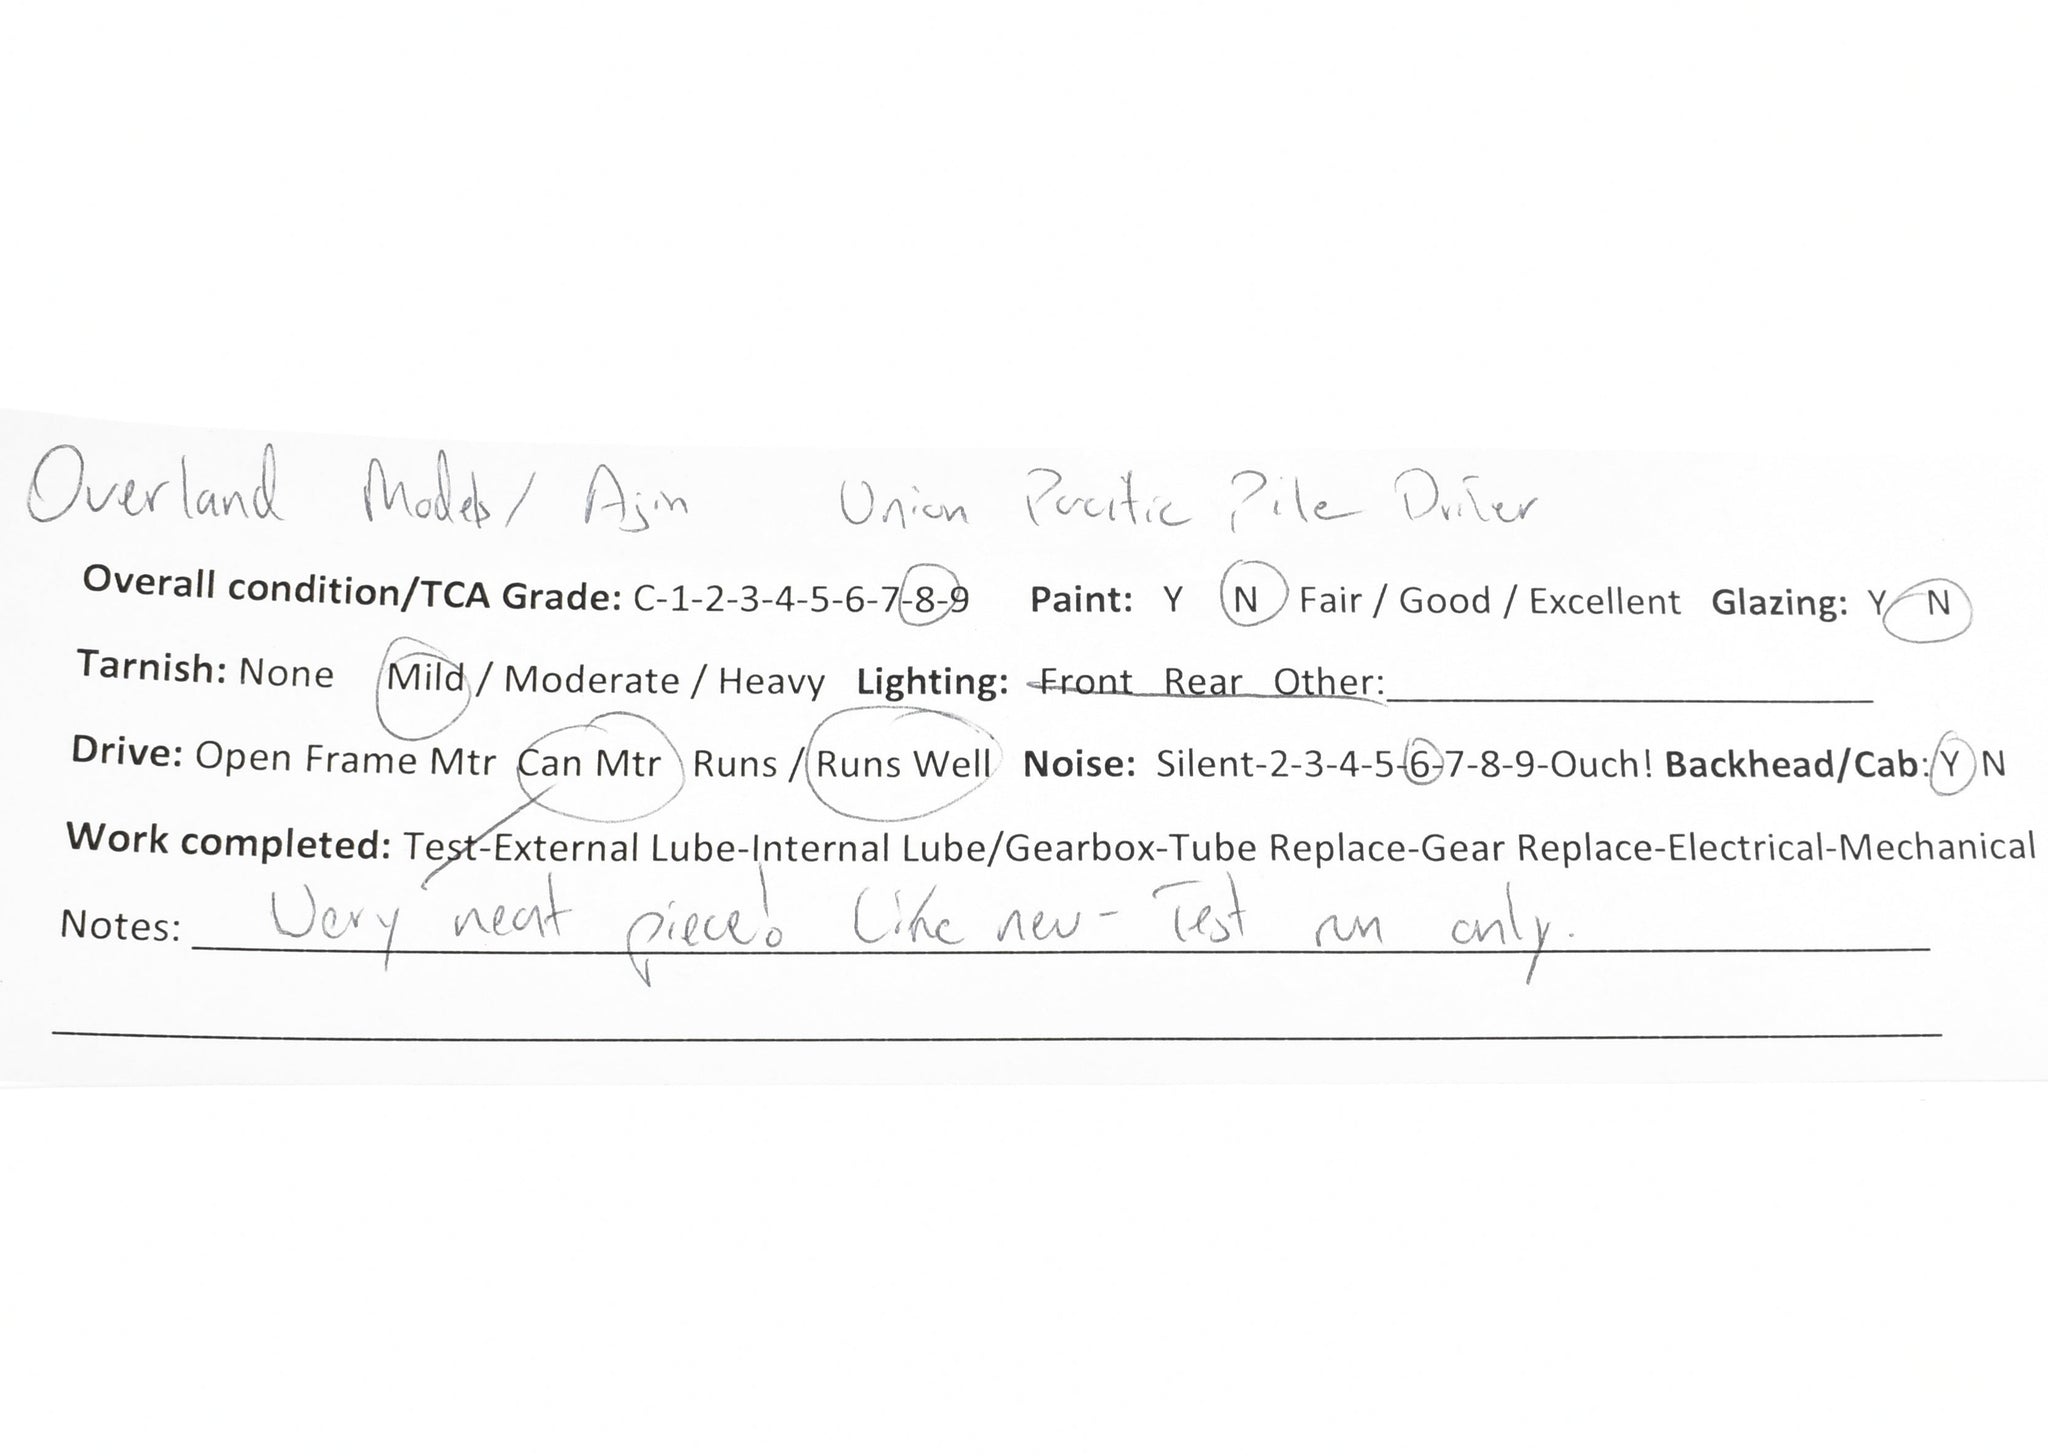 Overland Models/ Ajin Union Pacific Pile Driver
Overall condition/TCA Grade: C-1-2-3-4-5-6-7-8-9 Paint: Y N Fair / Good / Excellent Glazing: Y N
Tarnish: None Mild / Moderate / Heavy Lighting: Front Rear Other:
Drive: Open Frame Mtr Can Mtr Runs / Runs Well Noise: Silent-2-3-4-5-6-7-8-9-Ouch! Backhead/Cab: Y N
Work completed: Test-External Lube-Internal Lube/Gearbox-Tube Replace-Gear Replace-Electrical-Mechanical
Notes: Very neat piece! Like new - Test run only.